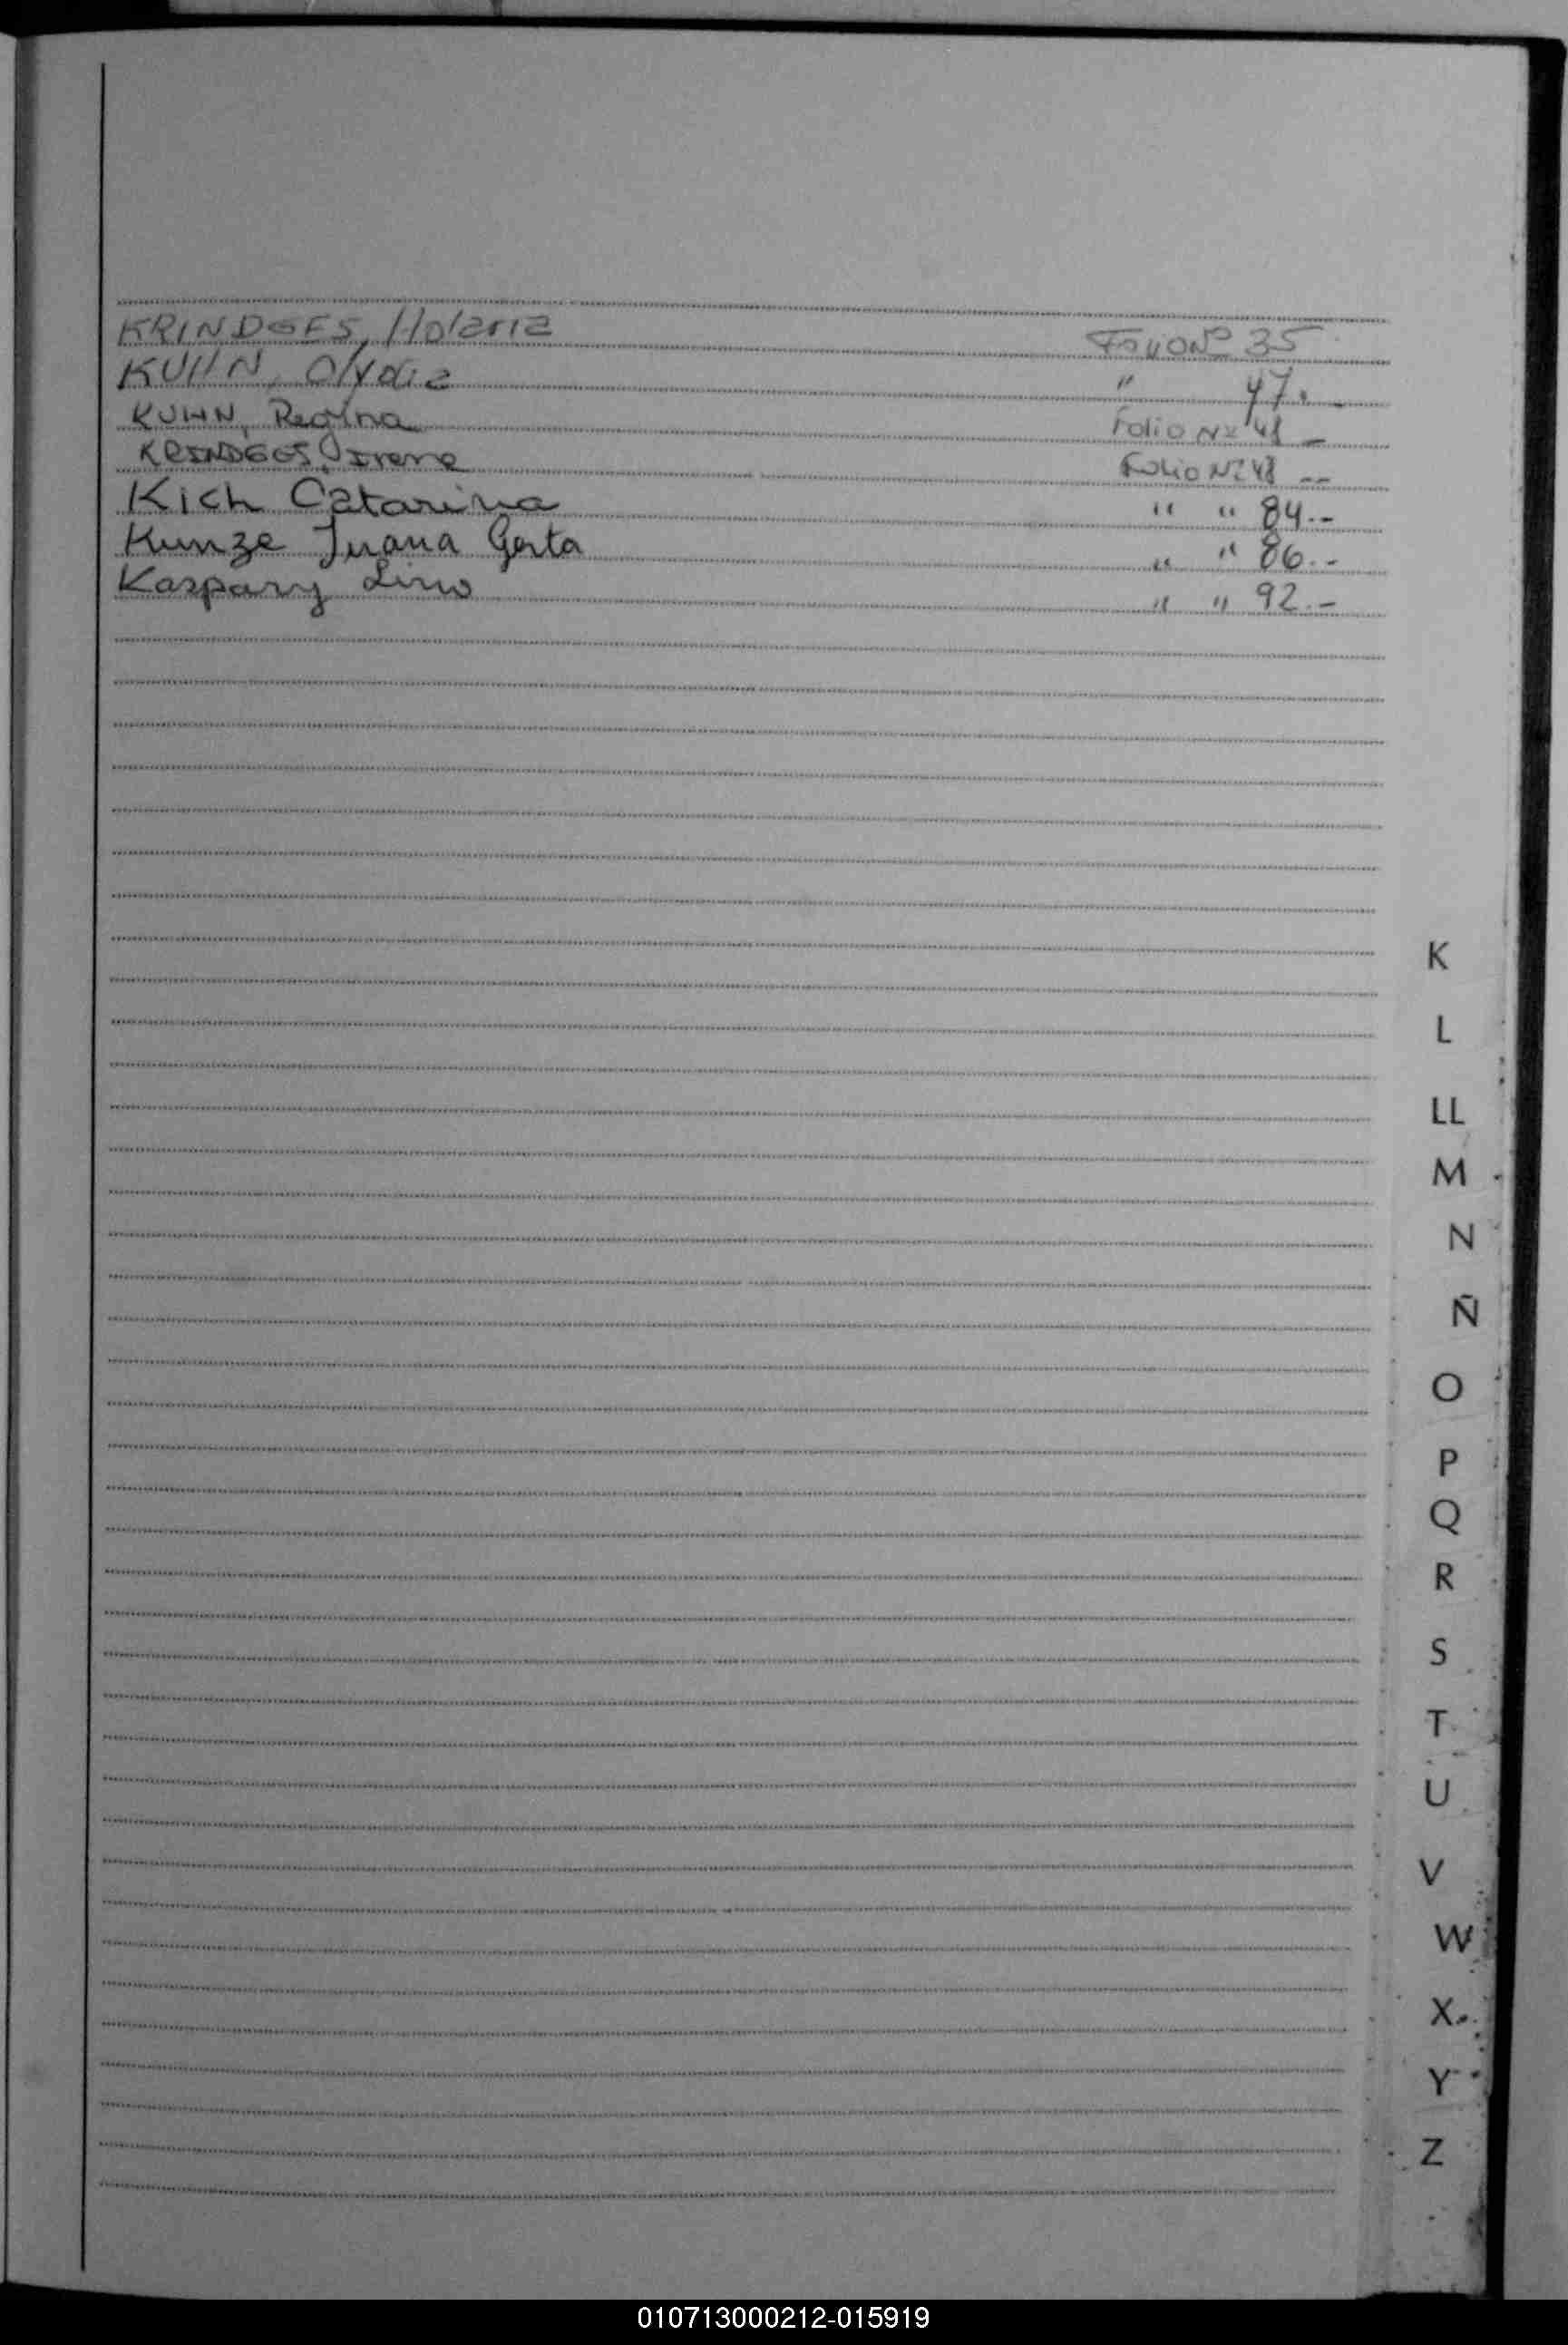 KRINDGES, Holaria Folio Nº 35
KUHN, Olydia " 47.-
KUHN, Regina Folio Nº 48 -
KRINDGES, Irene Folio Nº 48 --
Kich Catarina " " 84.--
Kunze Juana Gerta " " 86.--
Kaspary Lino " " 92.-
K
L
LL
M
N
Ñ
O
P
Q
R
S
T
U
V
W
X
Y
Z
010713000212-015919